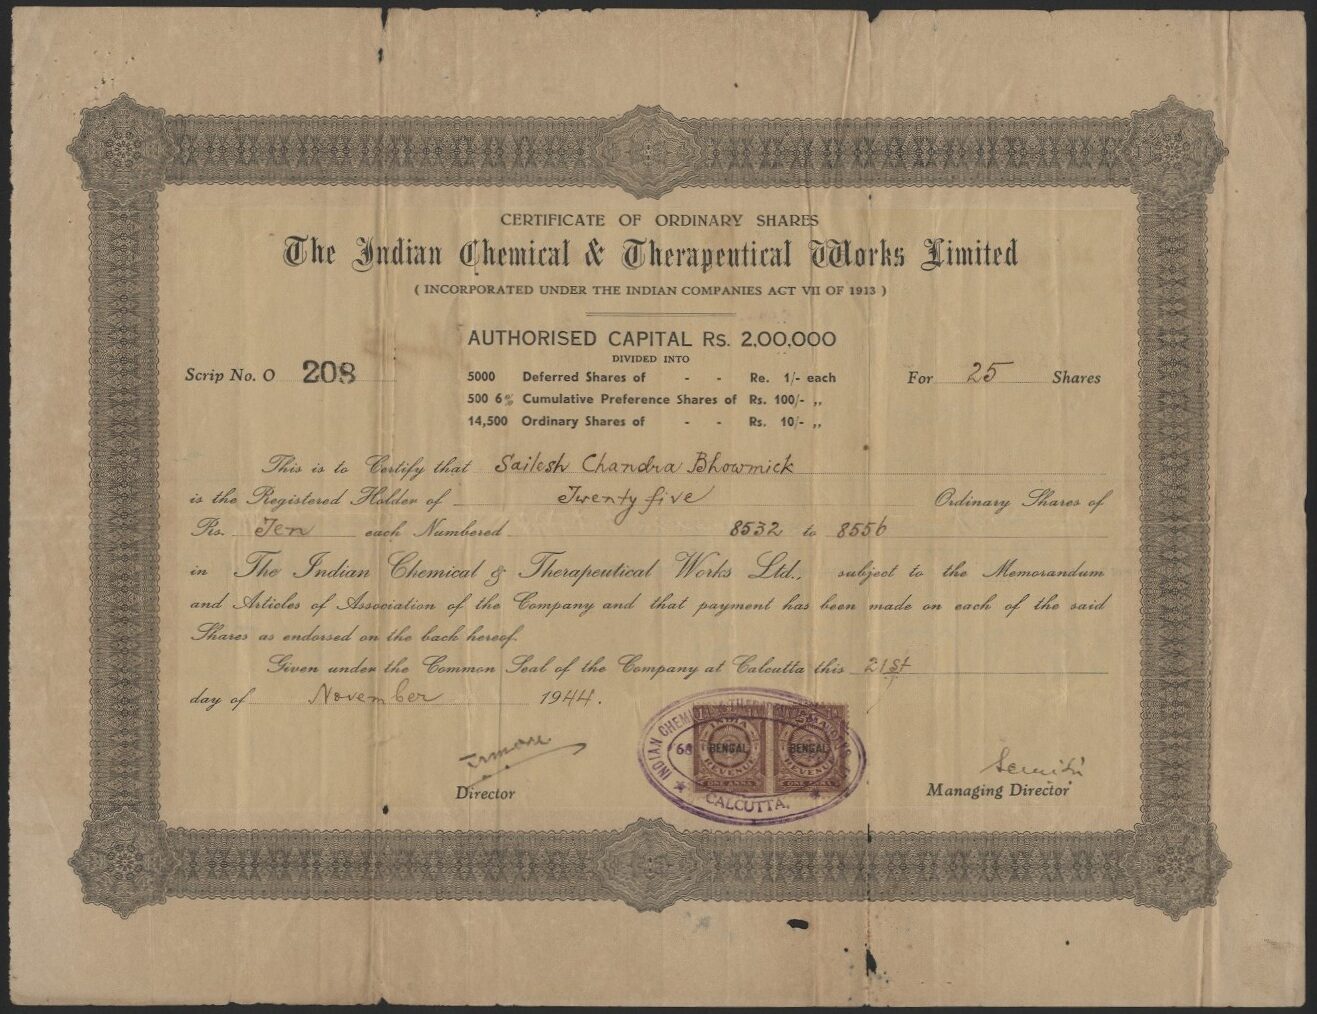 CERTIFICATE OF ORDINARY SHARES
The Indian Chemical & Therapeutical Works Limited
( INCORPORATED UNDER THE INDIAN COMPANIES ACT VII OF 1913 )
AUTHORISED CAPITAL Rs. 2,00,000
DIVIDED INTO
Scrip No. O 208
5000 Deferred Shares of - - Re. 1/- each
For 25 Shares
500 6% Cumulative Preference Shares of Rs. 100/- ,,
14,500 Ordinary Shares of - - Rs. 10/- ,,
This is to Certify that Sailesh Chandra Bhowmick
is the Registered Holder of Twenty five Ordinary Shares of
Rs. Ten each Numbered 8532 to 8556
in The Indian Chemical & Therapeutical Works Ltd., subject to the Memorandum
and Articles of Association of the Company and that payment has been made on each of the said
Shares as endorsed on the back hereof.
Given under the Common Seal of the Company at Calcutta this 21st
day of November 1944.
INDIAN CHEMICAL &
CALCUTTA.
INDIA INDIA
BENGAL BENGAL
REVENUE REVENUE
ONE ANNA ONE ANNA
Director
Managing Director